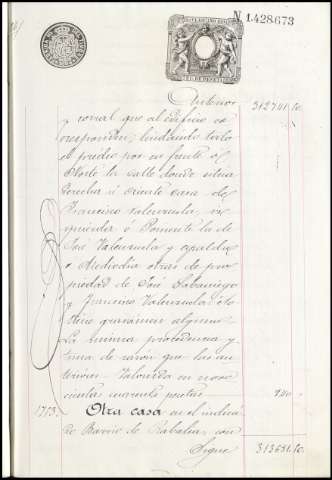 N 1.428.673
Anterior 312741.10.
y corral que al edificio co
rresponden; lindando todo
el predio por su frente ó
Norte la calle donde situa
derecha ú oriente casa de
Francisco Valenzuela, iz
quierda o Poniente la de
José Valenzuela y espalda
o Mediodia otras de pro
piedad de José
y Francisco Valenzuela, no
tiene gravámen alguno.
La misma procedencia y
toma de razón que las an
teriores. Valorada en nove
cientas cuarenta pesetas 940
1773. Otra casa en el indica
do Barrio de Rabalea, con
Sigue 313681.10.